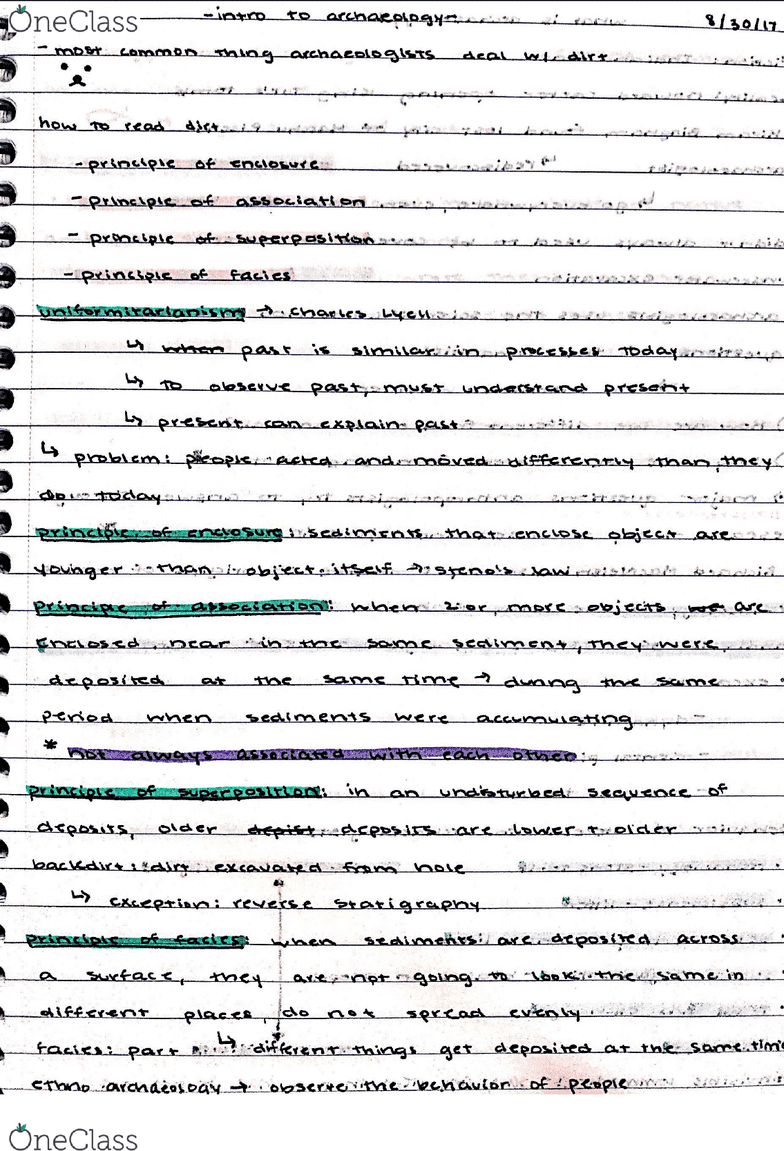 OneClass
-intro to archaeology-
8/30/17
- most common thing archaeologists deal w/ dirt
how to read dirt
- principle of enclosure
- principle of association
- principle of superposition
- principle of facies
uniformitarianism → Charles Lyell
↳ when past is similar in processes today
↳ to observe past, must understand present
↳ present can explain past
↳ problem: people acted and moved differently than they
do today
principle of enclosure: sediments that enclose object are
younger than object itself → steno's law
principle of association: when 2 or more objects we are
enclosed near in the same sediment, they were
deposited at the same time → during the same
period when sediments were accumulating
* not always associated with each other
principle of superposition: in an undisturbed sequence of
deposits, older depist deposits are lower + older
backdirt: dirt excavated from hole
↳ exception: reverse statigraphy
principle of facies: when sediments are deposited across
a surface, they are not going to look the same in
different places, do not spread evenly
facies: part ↳ different things get deposited at the same time
ethno archaeology → observe the behavior of people
OneClass